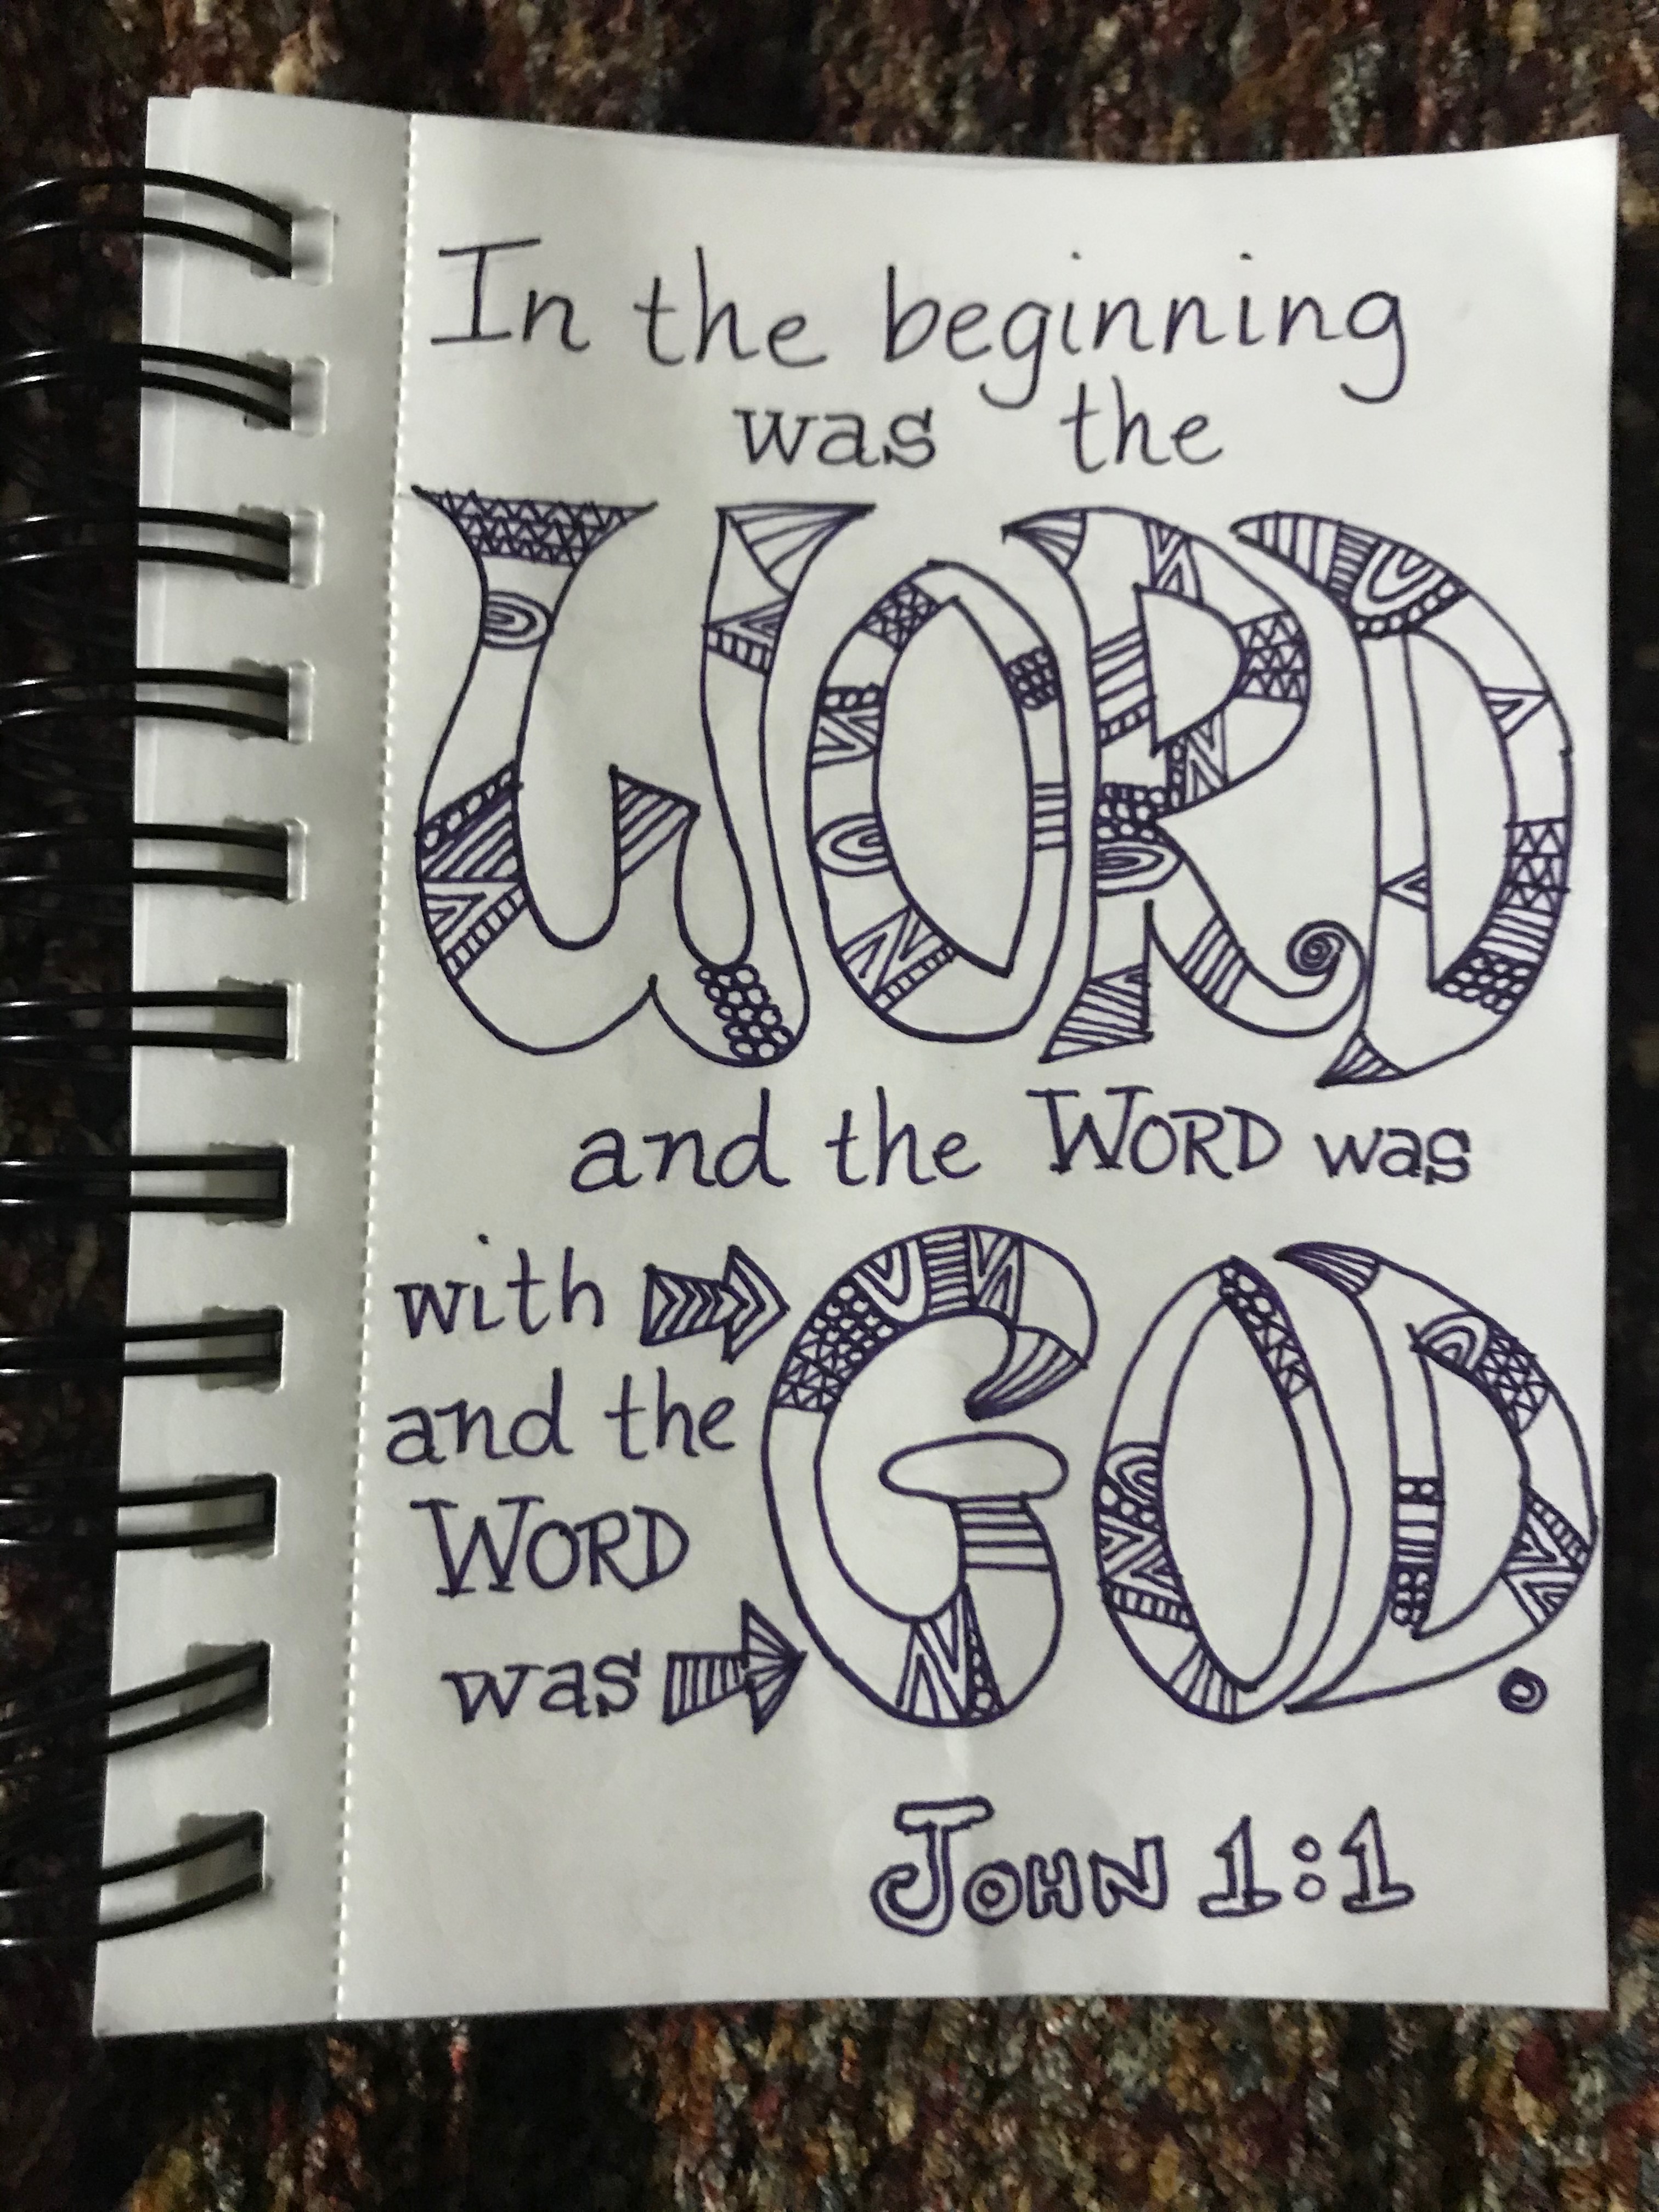 In the beginning
was the
WORD
and the WORD was
with GOD.
and the
WORD
was
JOHN 1:1